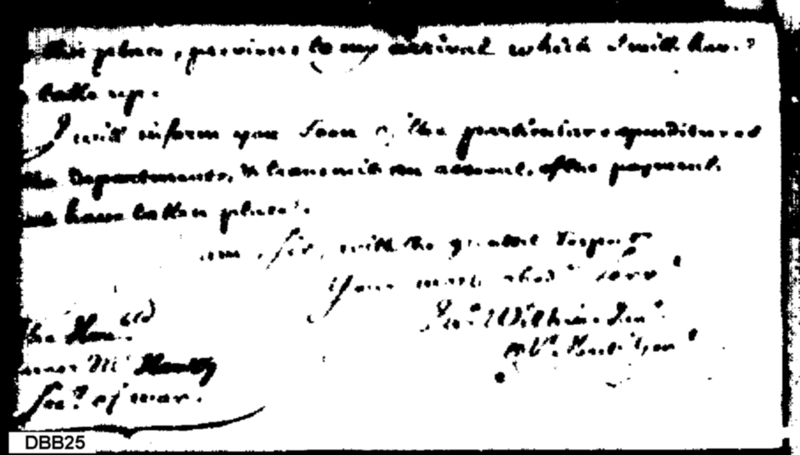 this place, previous to my arrival which I will have
to take up.
I will inform you soon of the particular expenditures
the Departments, & transmit an account, of the payment
have taken place.
am, Sir, with the greatest respect
Your most obedt Servt
Jas
The Honble
James Mc Henry
Secy of war.
DBB25